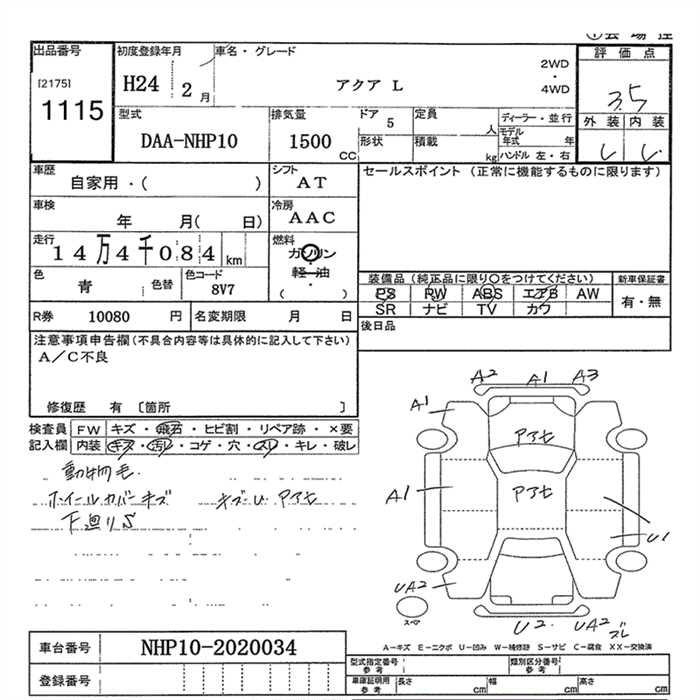 出品番号
[2175]
1115
初度登録年月
H24 2月
車名・グレード
アクア L
2WD
・
4WD
評価点
3.5
外装 内装
型式
DAA-NHP10
排気量
1500
CC
ドア
5
定員
人
形状
積載
kg
ディーラー・並行
モデル年式 年
ハンドル 左・右
車歴
自家用・( )
シフト
AT
セールスポイント (正常に機能するものに限ります)
車検
年 月( 日)
冷房
AAC
走行
14万4千084 km
燃料
ガソリン
・
軽油
・
( )
色
青
色替
色コード
8V7
装備品 (純正品に限り○をつけてください)
新車保証書
PS RW ABS エアB AW
有・無
SR ナビ TV カワ
R券 10080 円
名変期限 月 日
後日品
注意事項申告欄(不具合内容等は具体的に記入して下さい)
A/C不良
修復歴 有 〔箇所 〕
検査員 FW キズ・飛石・ヒビ割・リペア跡・×要
記入欄 内装 キズ・汚レ・コゲ・穴・スレ・キレ・破レ
動物毛
ホイールカバーキズ キズU アアセ
下廻りS
A2 A1 A3
A1
アアセ
A1
アアセ
U1
UA2
スペア
U2 UA2
スレ
A-キズ E-エクボ U-凹み W-補修跡 S-サビ C-腐食 XX-交換済
車台番号 NHP10-2020034
登録番号
型式指定番号
参考
類別区分番号
参考
車庫証明用
参考
長さ cm 幅 cm 高さ cm